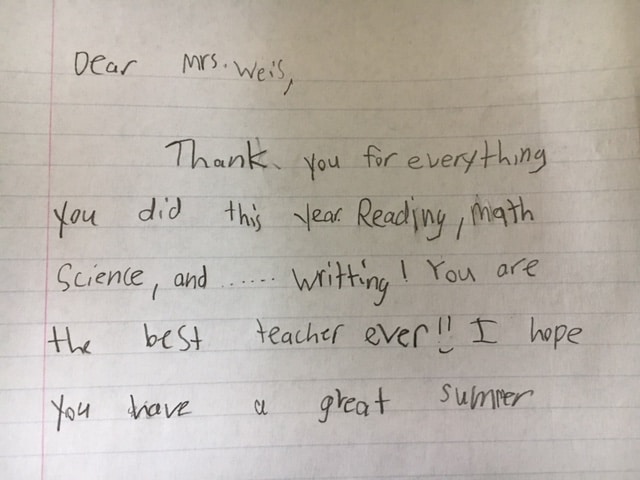 Dear Mrs. Weis,
Thank you for everything
you did this year. Reading, math
Science, and ...... writting! You are
the best teacher ever!! I hope
you have a great summer